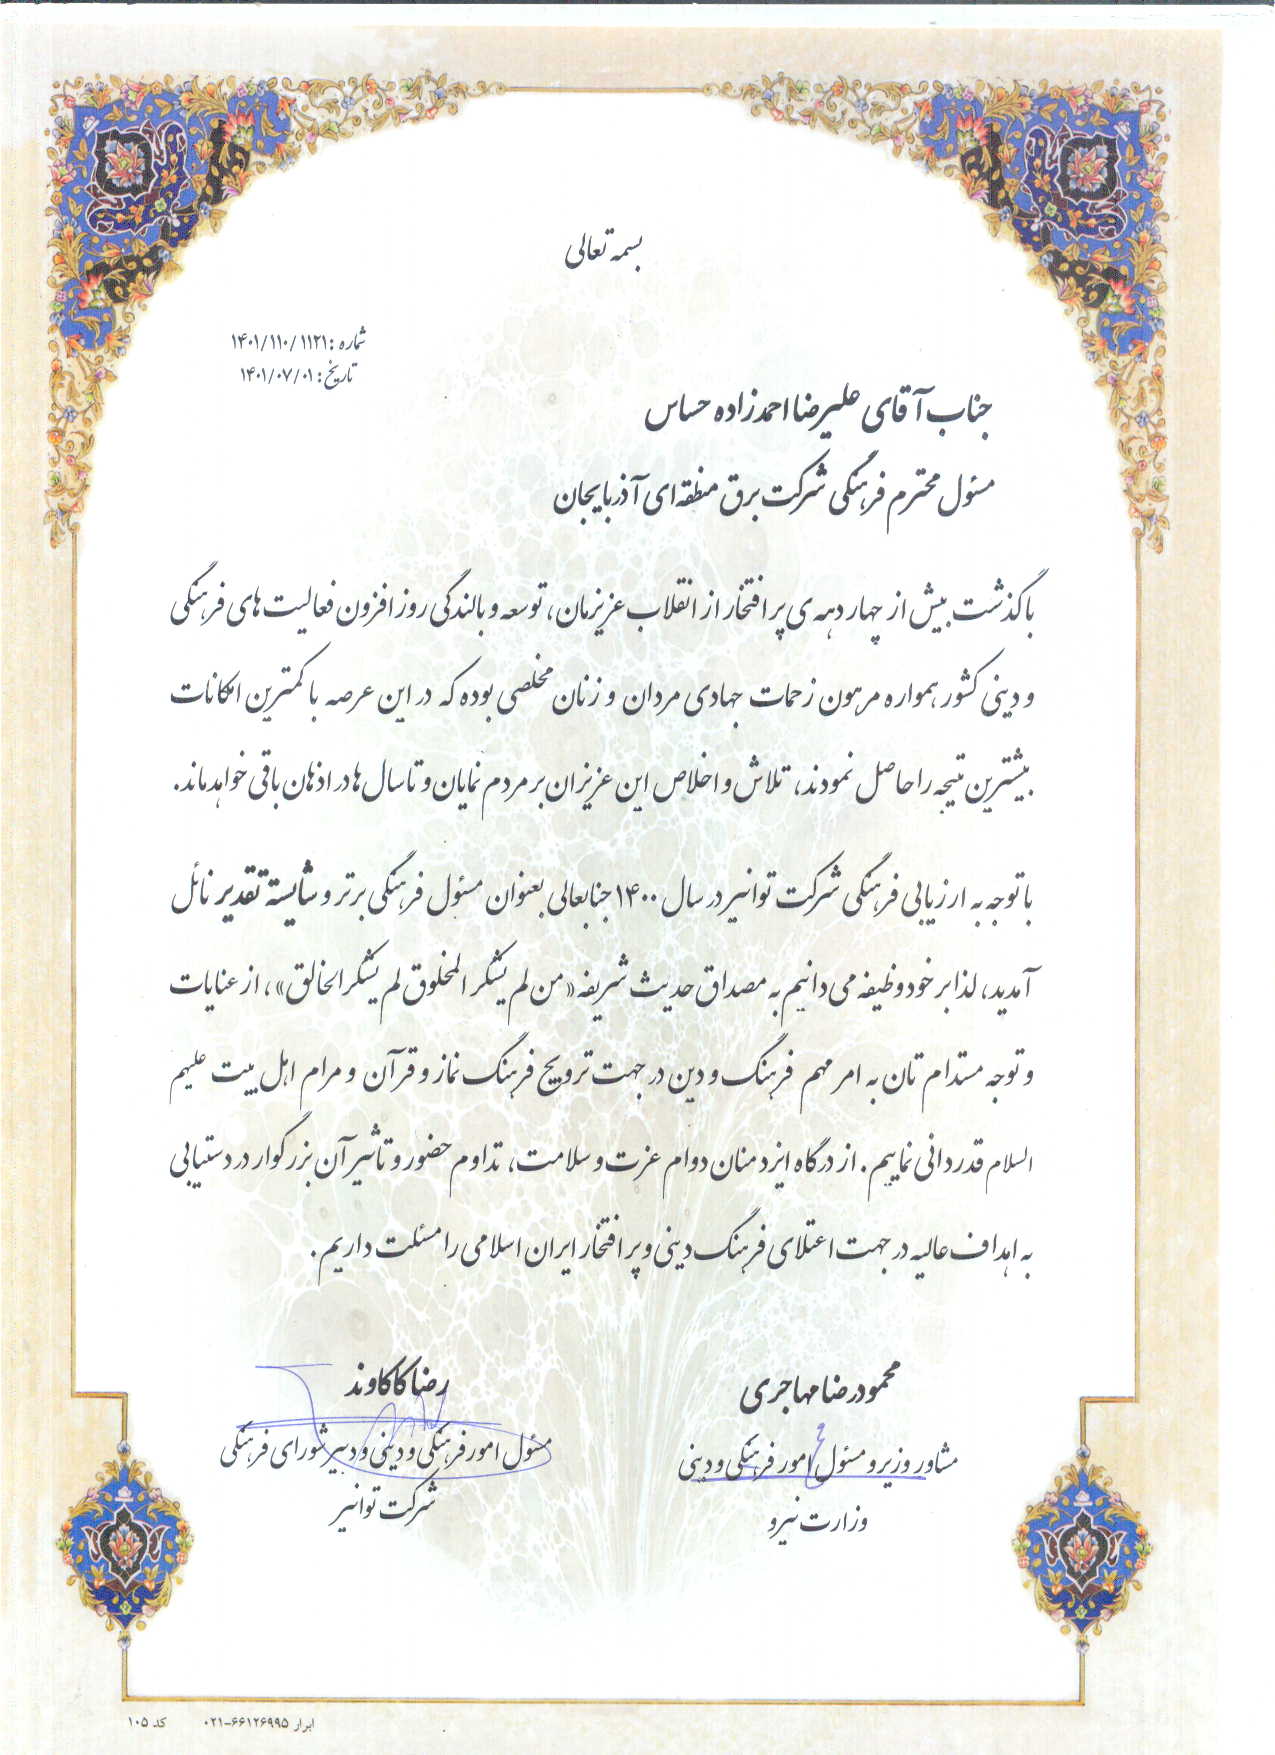 بسمه تعالی
شماره : ۱۴۰۱/۱۱۰/۱۱۲۱
تاریخ : ۱۴۰۱/۰۷/۰۱
جناب آقای علیرضا احمدزاده حساس
مسئول محترم فرهنگی شرکت برق منطقه ای آذربایجان
با گذشت بیش از چهار دهه ی پر افتخار از انقلاب عزیزمان، توسعه و بالندگی روز افزون فعالیت های فرهنگی
و دینی کشور همواره مرهون زحمات جهادی مردان و زنان مخلصی بوده که در این عرصه با کمترین امکانات
بیشترین نتیجه را حاصل نمودند، تلاش و اخلاص این عزیزان بر مردم نمایان و تا سال ها در اذهان باقی خواهد ماند.
با توجه به ارزیابی فرهنگی شرکت توانیر در سال ۱۴۰۰ جنابعالی بعنوان مسئول فرهنگی برتر و شایسته تقدیر نائل
آمدید، لذا بر خود وظیفه می دانیم به مصداق حدیث شریفه «من لم یشکر المخلوق لم یشکر الخالق»، از عنایات
و توجه مستدام تان به امر مهم فرهنگ و دین در جهت ترویج فرهنگ نماز و قرآن و مرام اهل بیت علیهم
السلام قدردانی نماییم. از درگاه ایزد منان دوام عزت و سلامت، تداوم حضور و تاثیر آن بزرگوار در دستیابی
به اهداف عالیه در جهت اعتلای فرهنگ دینی و پر افتخار ایران اسلامی را مسئلت داریم.
محمودرضا مهاجری
مشاور وزیر و مسئول امور فرهنگی و دینی
وزارت نیرو
رضا کاکاوند
مسئول امور فرهنگی و دینی و دبیر شورای فرهنگی
شرکت توانیر
ابرار ۶۶۱۲۶۹۹۵-۰۲۱ کد ۱۰۵